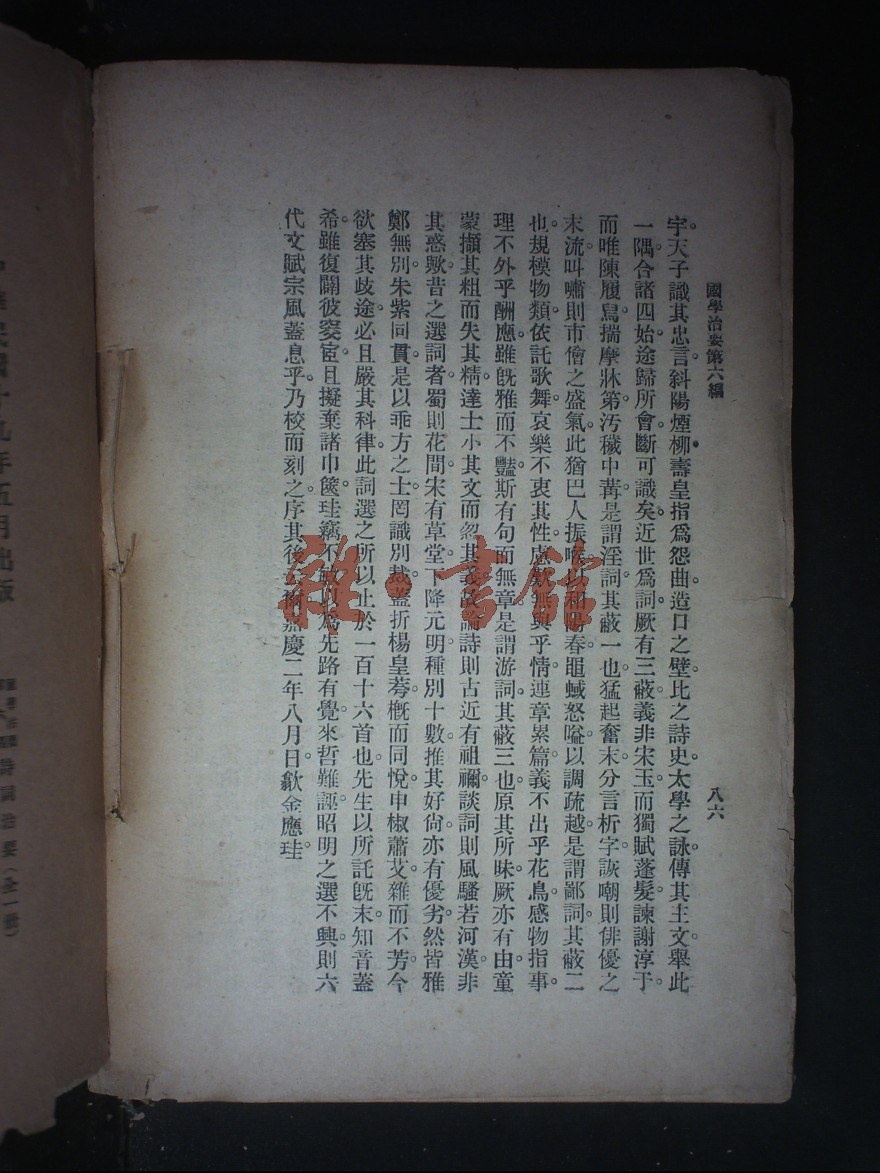 國學治要第六編
八六
宇。天子識其忠言。斜陽煙柳。壽皇指爲怨曲。造口之壁。比之詩史。太學之詠。傳其主文。舉此
一隅。合諸四始。途歸所會。斷可識矣。近世爲詞。厥有三蔽。義非宋玉。而獨賦蓬髮。諫謝淳于。
而唯陳履舃。揣摩牀笫。汚穢中冓。是謂淫詞。其蔽一也。猛起奮末。分言析字。詼嘲則俳優之
末流。叫嘯則市儈之盛氣。此猶巴人振喉以和陽春。黽蜮怒嗌以調疏越。是謂鄙詞。其蔽二
也。規模物類。依託歌舞。哀樂不衷其性。慮歎無與乎情。連章累篇。義不出乎花鳥。感物指事。
理不外乎酬應。雖旣雅而不豔。斯有句而無章。是謂游詞。其蔽三也。原其所昧。厥亦有由。童
蒙擷其粗而失其精。達士小其文而忽其義。故論詩則古近有祖禰。談詞則風騷若河漢。非
其惑歟。昔之選詞者。蜀則花間。宋有草堂。下降元明。種別十數。推其好尙。亦有優劣。然皆雅
鄭無別。朱紫同貫。是以乖方之士。罔識別裁。蓋折楊皇荂。槪而同悅。申椒蕭艾。雜而不芳。今
欲塞其歧途。必且嚴其科律。此詞選之所以止於一百十六首也。先生以所託旣末。知音蓋
希。雖復闢彼窔宧。且擬棄諸巾篋。珪竊不敏。以爲先路有覺。來哲難誣。昭明之選不興。則六
代文賦宗風蓋息乎。乃校而刻之。序其後云爾。嘉慶二年八月日歙金應珪
雜·書館
中華民國十九年五月出版
詩詞治要（全一册）